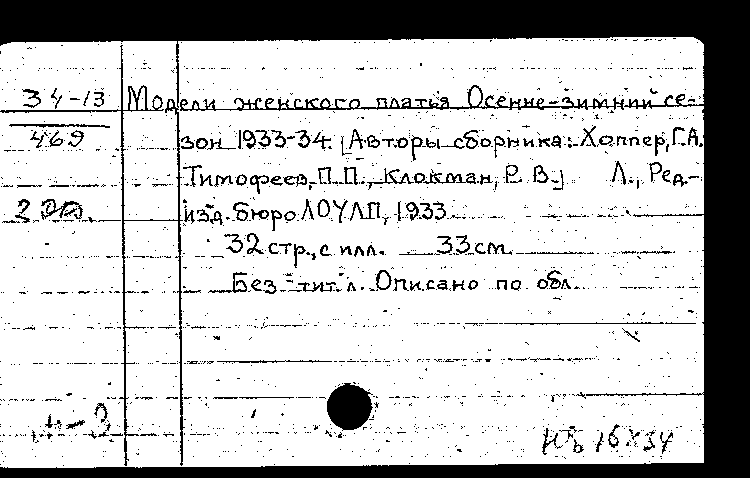 34-13
469
2 экз.
Модели женского платья Осенне-зимний се-
зон 1933-34. [Авторы сборника: Хоппер, Г.А.
Тимофеев, П.П., Клокман, Р. В.] Л., Ред.-
изд. бюро ЛОУЛП, 1933
32 стр., с илл. 33 см.
Без тит л. Описано по обл.
16 X 34